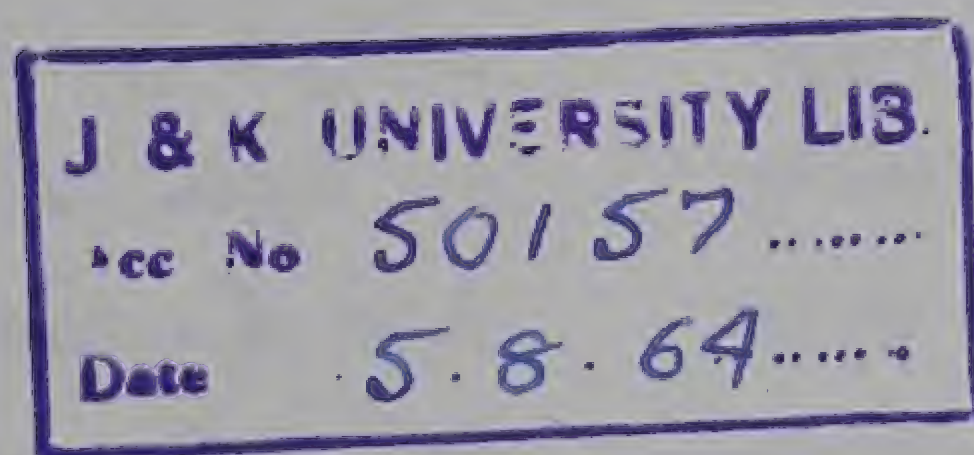 J & K UNIVERSITY LIB.
Acc No 50157.........
Date .5.8.64.......